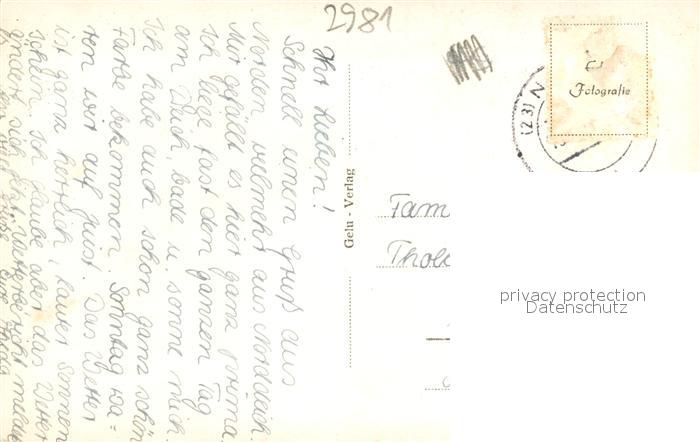 2981
Ihr Lieben!
Schnell einen Gruß aus
Norden vielmehr aus Norddeich.
Mir gefällt es hier ganz prima.
Ich liege fast den ganzen Tag
am Deich, bade u. sonne mich.
Ich habe auch schon ganz schön
Farbe bekommen. Sonntag wa=
ren wir auf Juist. Das Wetter
ist ganz herrlich, lauter Sonnen
schein. Ich glaube aber das Wetter
ändert sich Wetterbericht meldet
Eure
Gelu - Verlag
Fotografie
(23) N
Fam
Thole
privacy protection
Datenschutz